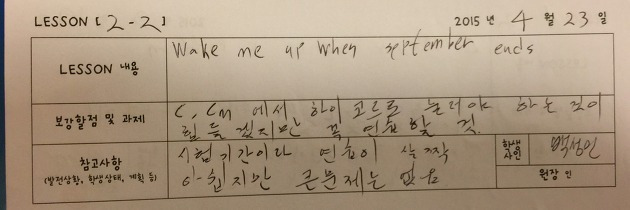 LESSON [ 2-2 ] 2015 년 4 월 23 일
LESSON 내용 Wake me up when september ends
보강할점 및 과제 C, Cm 에서 하이 코드로 눌러야 하는 것이
힘들겠지만 꼭 연습할 것.
참고사항 시험기간이라 연습이 살짝
(발전상황, 학생상태, 계획 등) 아쉽지만 큰문제는 없음
학생 사인 백성인
원장 인